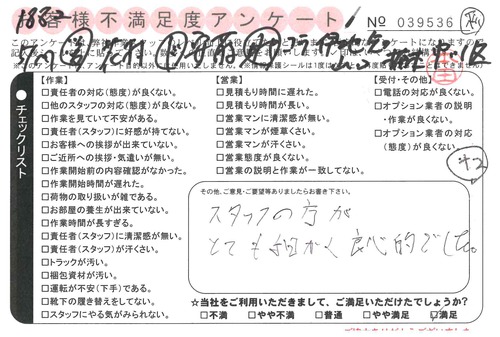 お客様不満足度アンケート
No 039536
チェックリスト
【作業】
□責任者の対応(態度)が良くない。
□他のスタッフの対応(態度)が良くない。
□作業を見ていて不安がある。
□責任者(スタッフ)に好感が持てない。
□お客様への挨拶が出来ていない。
□ご近所への挨拶・気遣いが無い。
□作業開始前の内容確認がなかった。
□作業開始時間が遅れた。
□荷物の取り扱いが雑である。
□お部屋の養生が出来ていない。
□作業時間が長すぎる。
□責任者(スタッフ)に清潔感が無い。
□責任者(スタッフ)が汗くさい。
□トラックが汚い。
□梱包資材が汚い。
□運転が不安(下手)である。
□靴下の履き替えをしてない。
□スタッフにやる気がみられない。
【営業】
□見積もり時間に遅れた。
□見積もり時間が長い。
□営業マンに清潔感が無い。
□営業マンが煙草くさい。
□営業マンが汗くさい。
□営業態度が良くない。
□営業の説明と作業が一致してない。
【受付・その他】
□電話の対応が良くない。
□オプション業者の説明
・作業が良くない。
□オプション業者の対応
(態度)が良くない。
その他、ご意見・ご要望等ありましたらお書き下さい。
スタッフの方が
とても細かく良心的でした。
☆当社をご利用いただきまして、ご満足いただけたでしょうか?
□不満 □やや不満 □普通 □やや満足 □満足